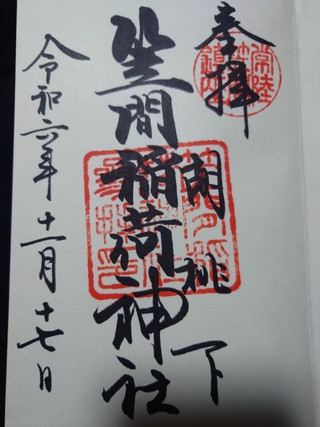 奉拝
常陸
胡桃下
笠間稲荷神社
令和六年十一月十七日